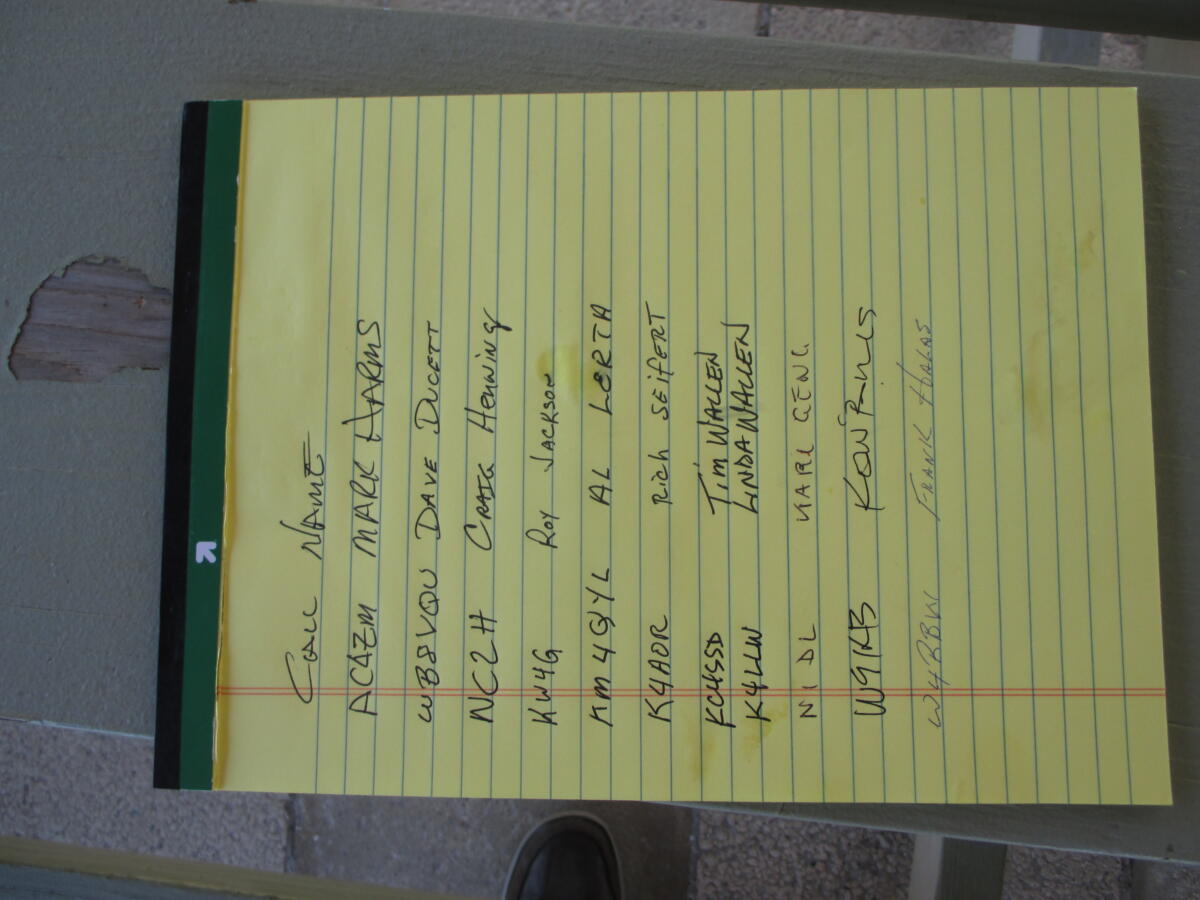 CALL NAME
AC4ZM MARK HARMS
WB8VQU DAVE DUCETT
NC2H CRAIG HENNING
KW4G ROY JACKSON
KM4QYL AL LERTA
K4ADR RICH SEIFERT
KC4SSD TIM WALLEN
K4LLW LINDA WALLEN
N1DL KARL
W9IKB
FRANK HALAS